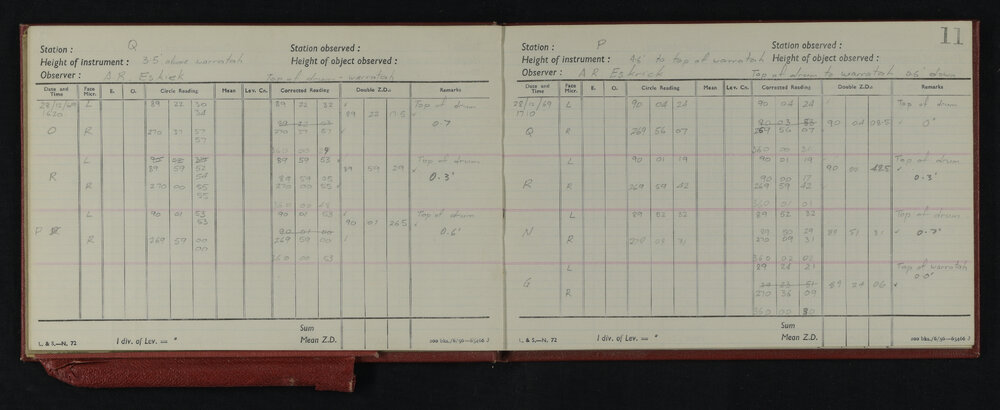 Station : Q Station observed :
Height of instrument : 3·5 above warratah Height of object observed :
Observer : A R. Eskrick Top of drum - warratah
Date and Time Face Micr. E. O. Circle Reading Mean Lev. Cn. Corrected Reading Double Z.D.s Remarks
28/12/69 L 89 22 30 89 22 32 Top of drum
1620 34 89 22 17·5 0·7
O R 270 37 57 270 37 57
57
360 00
L 89 59 53 Top of drum
89 59 52 89 59 29
R 54 0·3'
R 270 00 55 270 00 55
55
360 00 48
L 90 01 53 90 01 53 Top of drum
53 90 01 26·5
P 0·6'
R 269 59 00 269 59 00
00
360 00 53
Sum
L. & S.—N. 72 1 div. of Lev. = " Mean Z.D.
11
Station : P Station observed :
Height of instrument : 4·6' to top of warratah Height of object observed :
Observer : A R Eskrick Top of drum to warratah 0·6' down
Date and Time Face Micr. E. O. Circle Reading Mean Lev. Cn. Corrected Reading Double Z.D.s Remarks
28/12/69 L 90 04 24 90 04 24 Top of drum
1710 90 03 90 04 08·5 0'
Q R 269 56 07 269 56 07
360 00 31
L 90 01 19 90 01 19 Top of drum
90 00 17 90 00 48·5 0·3'
R R 269 59 42 269 59 42
360 01 01
L 89 52 32 89 52 32 Top of drum
N 89 51 31 0·7'
R 270 09 31 270 09 31
360 02 02
L 89 24 21 Top of warratah
G 89 24 06 0·0'
R 270 36 09
360 00
Sum
L. & S.—N. 72 1 div. of Lev. = " Mean Z.D.